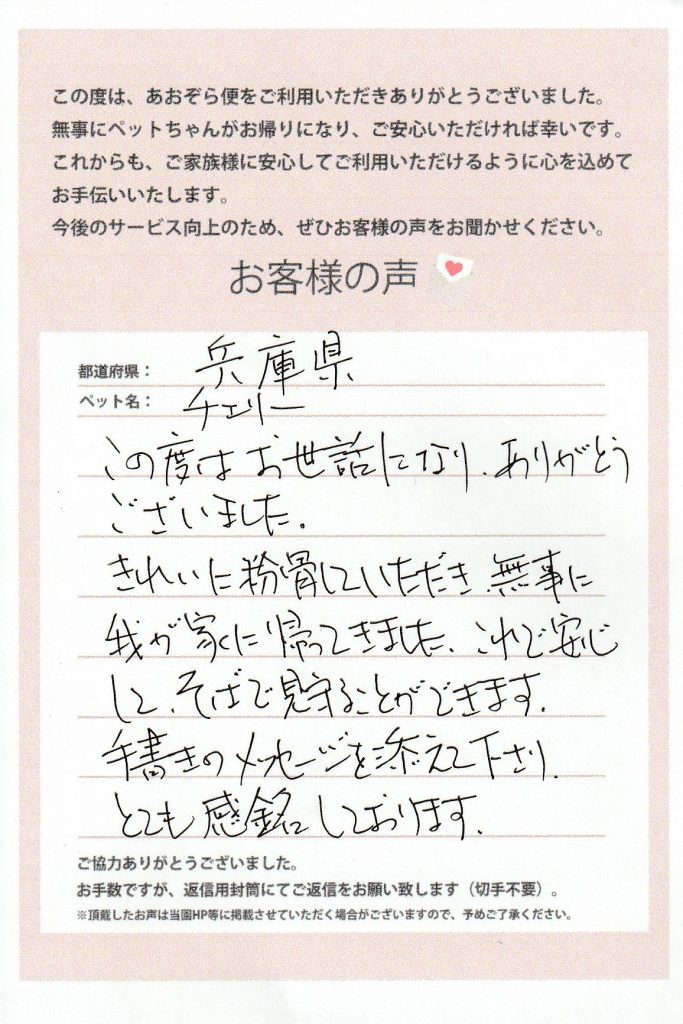 この度は、あおぞら便をご利用いただきありがとうございました。
無事にペットちゃんがお帰りになり、ご安心いただければ幸いです。
これからも、ご家族様に安心してご利用いただけるように心を込めて
お手伝いいたします。
今後のサービス向上のため、ぜひお客様の声をお聞かせください。
お客様の声
都道府県： 兵庫県
ペット名： チェリー
この度はお世話になり、ありがとう
ございました。
きれいに粉骨していただき、無事に
我が家に帰ってきました。これで安心
して、そばで見守ることができます。
手書きのメッセージを添えて下さり、
とても感銘しております。
ご協力ありがとうございました。
お手数ですが、返信用封筒にてご返信をお願い致します（切手不要）。
※頂戴したお声は当園HP等に掲載させていただく場合がございますので、予めご了承ください。